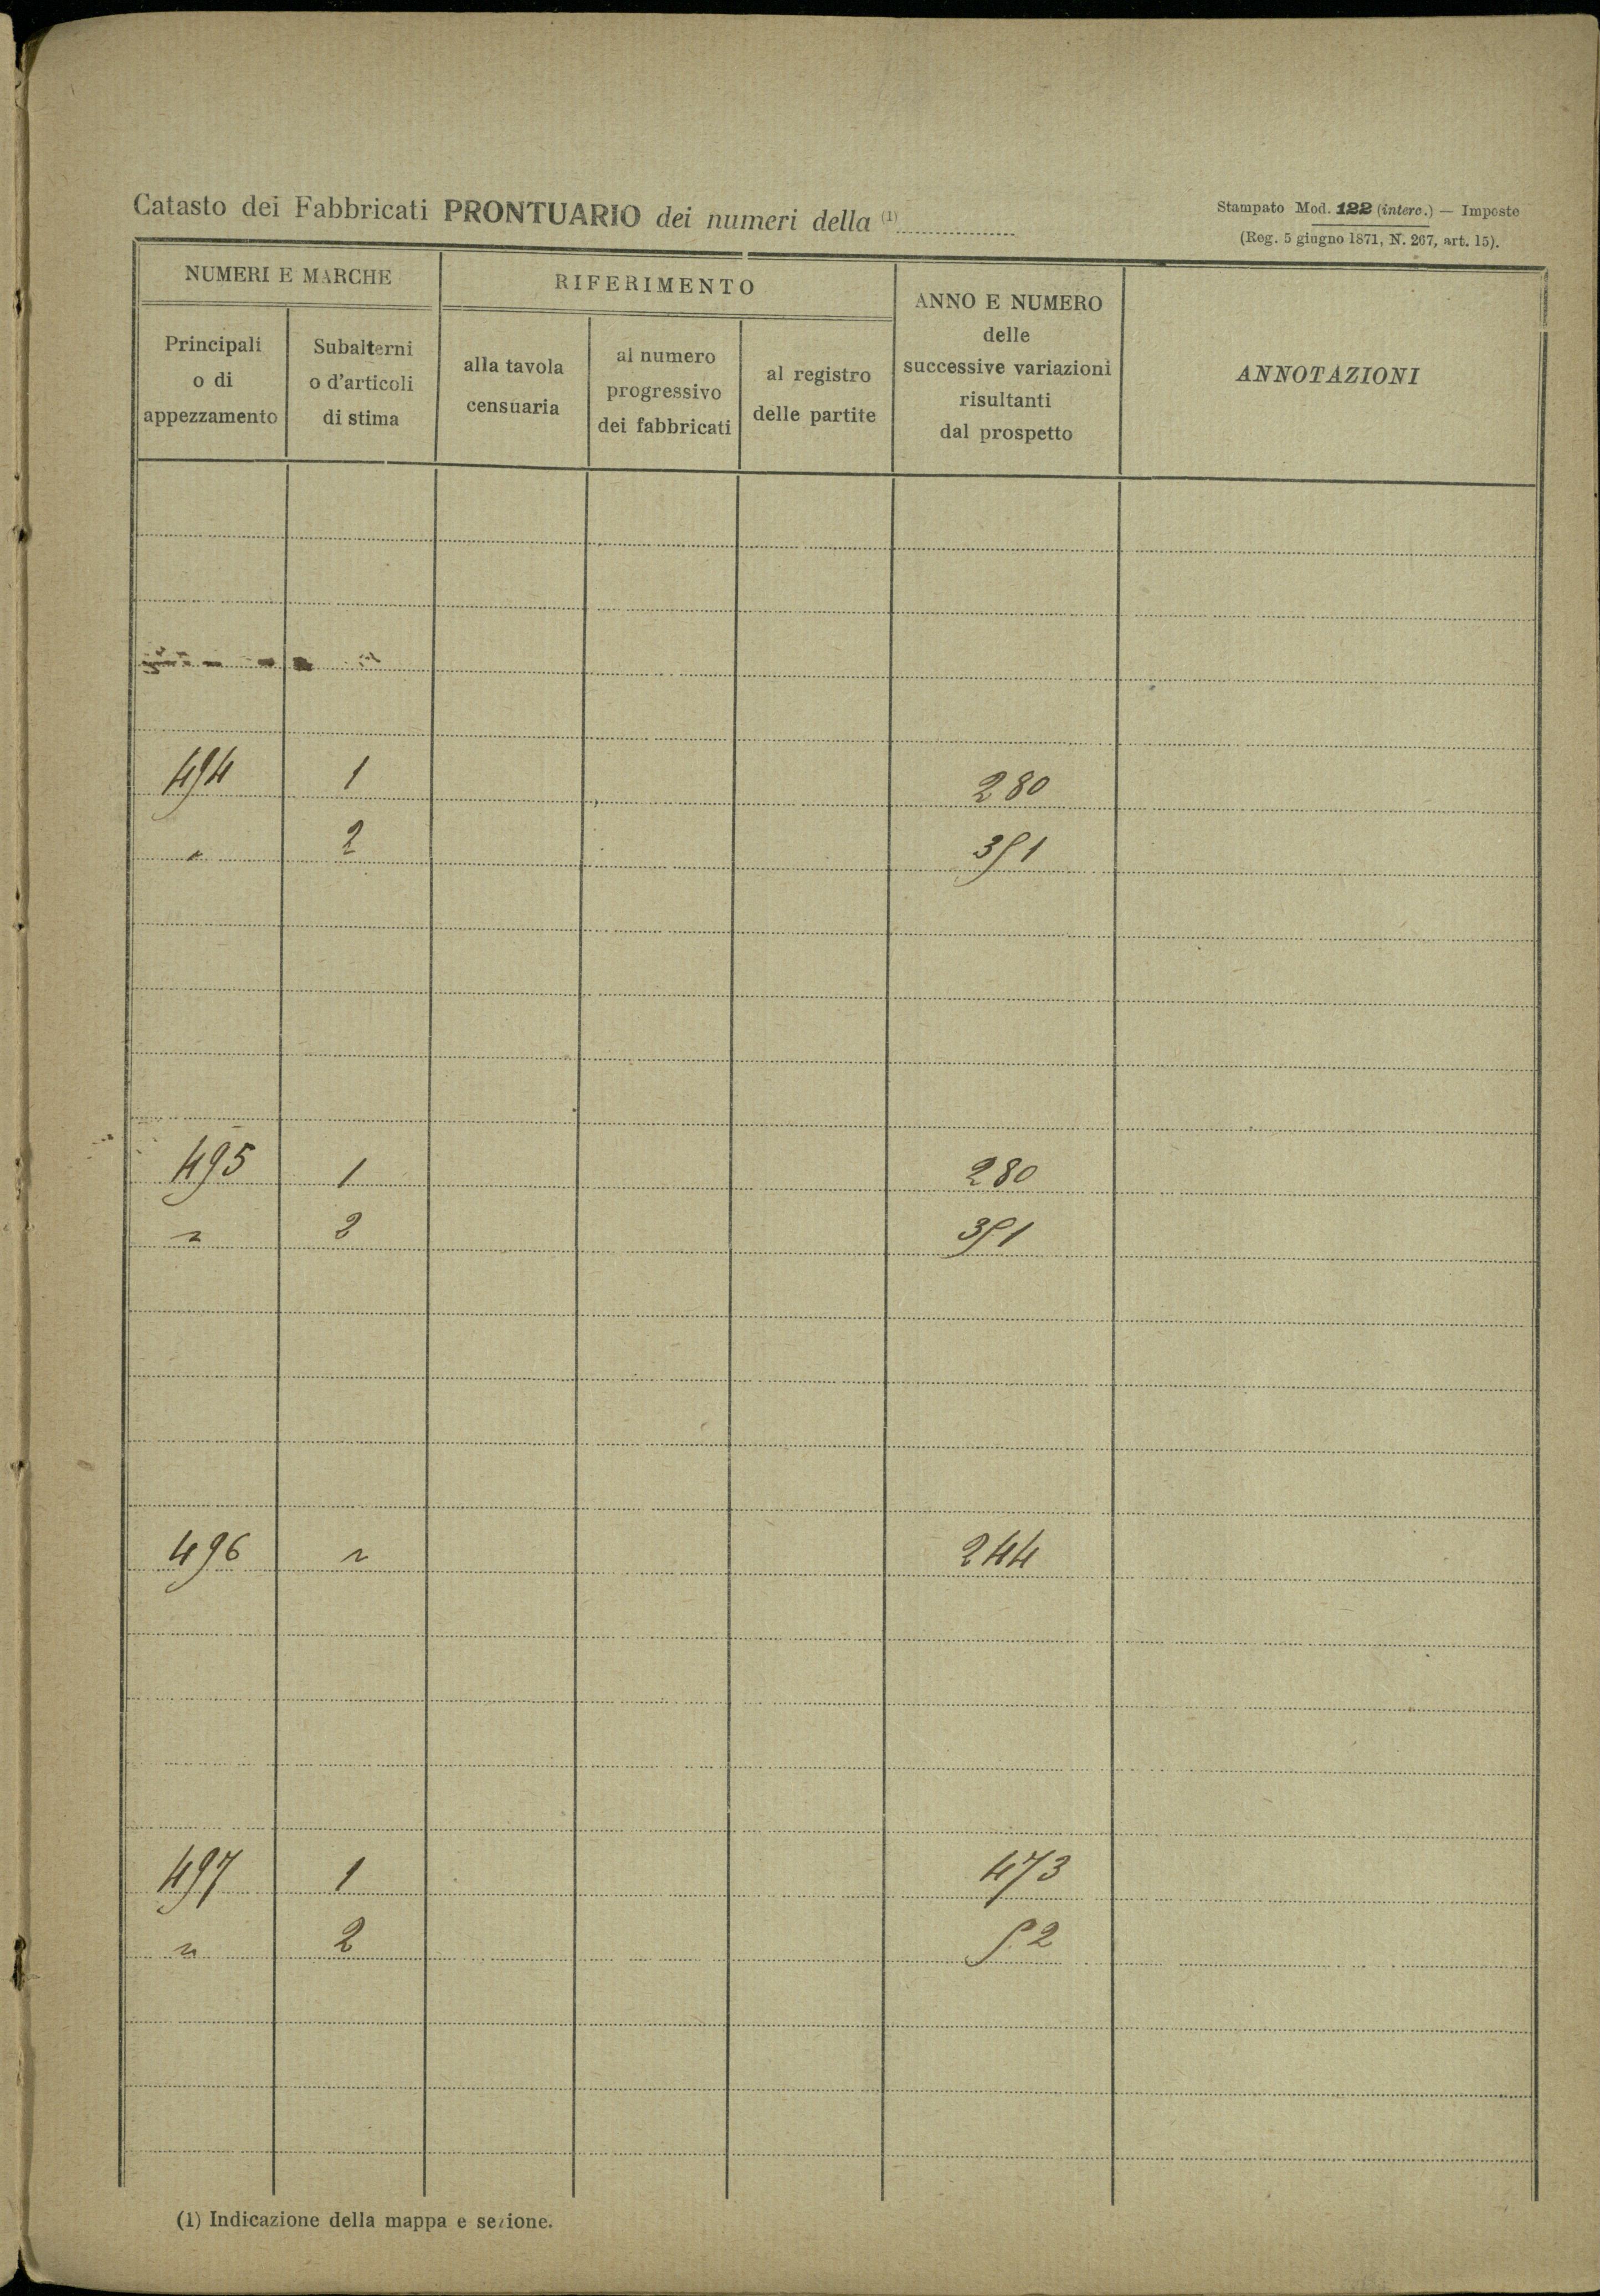 Catasto dei Fabbricati PRONTUARIO dei numeri della (1)
Stampato Mod. 122 (interc.) — Imposte
(Reg. 5 giugno 1871, N. 267, art. 15).
NUMERI E MARCHE
RIFERIMENTO
ANNO E NUMERO
delle
successive variazioni
risultanti
dal prospetto
ANNOTAZIONI
Principali
o di
appezzamento
Subalterni
o d'articoli
di stima
alla tavola
censuaria
al numero
progressivo
dei fabbricati
al registro
delle partite
494 1 280
" 2 351
495 1 280
" 2 351
496 " 244
497 1 473
" 2 52
(1) Indicazione della mappa e sezione.